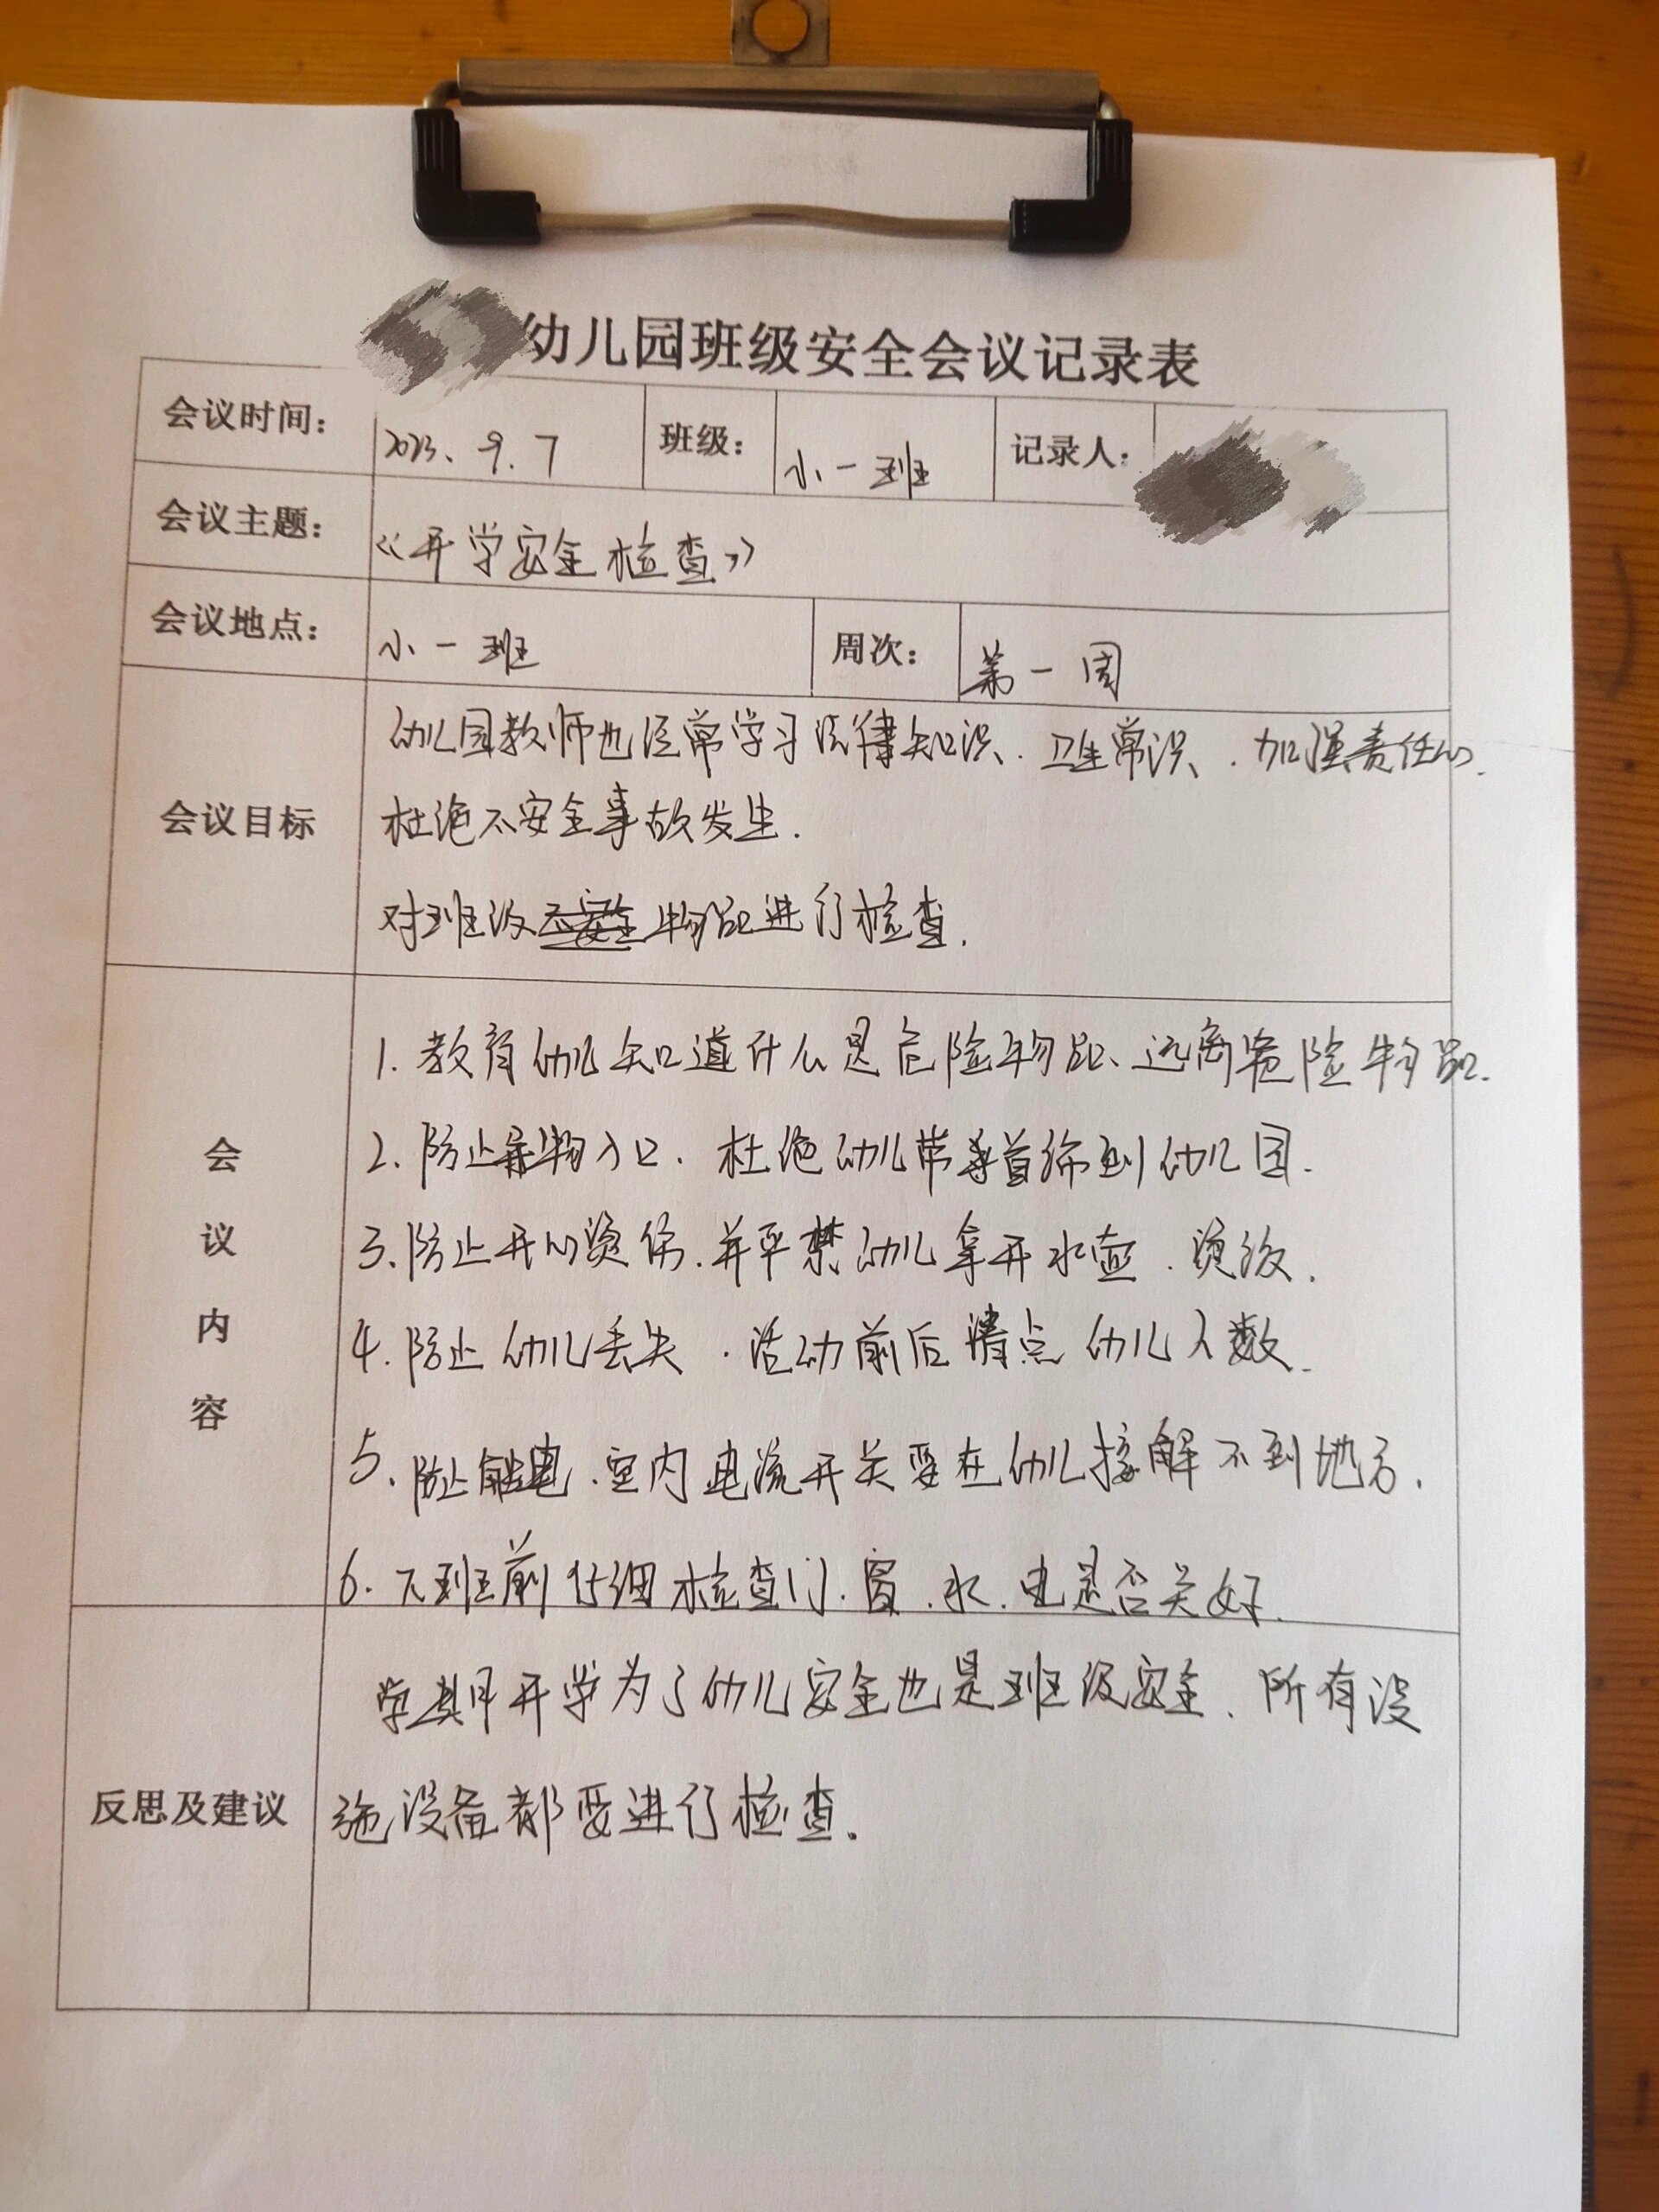 幼儿园班级安全会议记录表
会议时间: 2023.9.7 班级: 小一班 记录人:
会议主题: 《开学安全检查》
会议地点: 小一班 周次: 第一周
会议目标
幼儿园教师也经常学习法律知识、卫生常识、加强责任心.
杜绝不安全事故发生.
对班级物品进行检查.
会议内容
1. 教育幼儿知道什么是危险物品、远离危险物品.
2. 防止异物入口. 杜绝幼儿带首饰到幼儿园.
3. 防止开心烫伤. 并严禁幼儿拿开水壶. 烫饭.
4. 防止幼儿丢失. 活动前后清点幼儿人数.
5. 防止触电. 室内电流开关要在幼儿接解不到地方.
6. 下班前仔细检查门. 窗. 水. 电是否关好.
反思及建议
学期开学为了幼儿安全也是班级安全. 所有设
施设备都要进行检查.